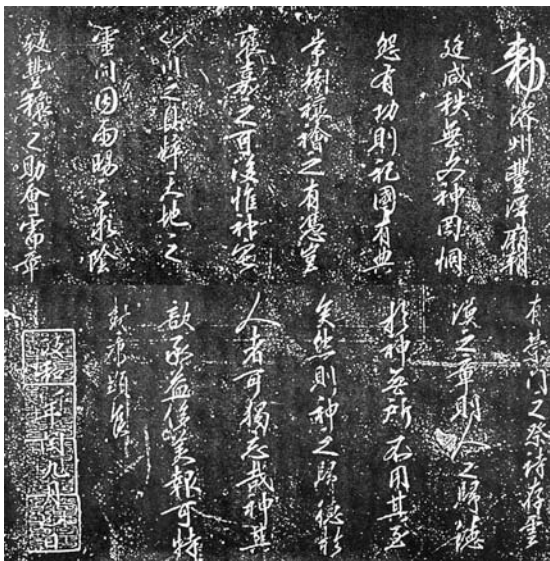 勅濟州豐澤廟朝
廷咸秩無文神罔恫
怨有功則祀國有典
常矧禳禬之有憑豈
褒嘉之可後惟神宅
山川之奧粹天地之
靈間因雨暘之求陰
致豐穰之助會當
有禜門之祭詩存雲
漢之章則人之歸德
於神無所不用其至
矣然則神之歸德於
人者可獨忘哉神其
歆承益俟美報可特
封康顯侯
政和年閏九月日